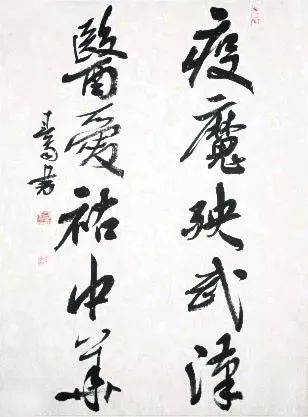 疫魔殃武漢
醫愛祐中華